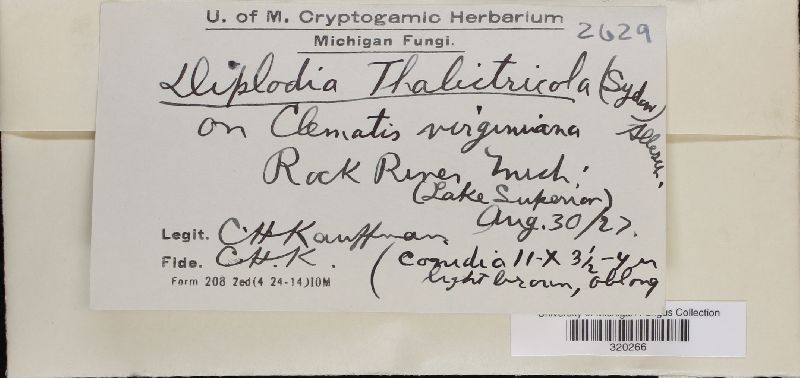 U. of M. Cryptogamic Herbarium
2629
Michigan Fungi.
Diplodia Thalictricola (Sydow) Allesch.
on Clematis virginiana
Rock River, Mich.
(Lake Superior)
Aug. 30/27.
Legit. CHKauffman
Fide. C.H.K.
(conidia 11-X 3½-4 µ
light brown, oblong
Form 208 2ed(4 24-14)10M
University of Michigan Fungus Collection
320266